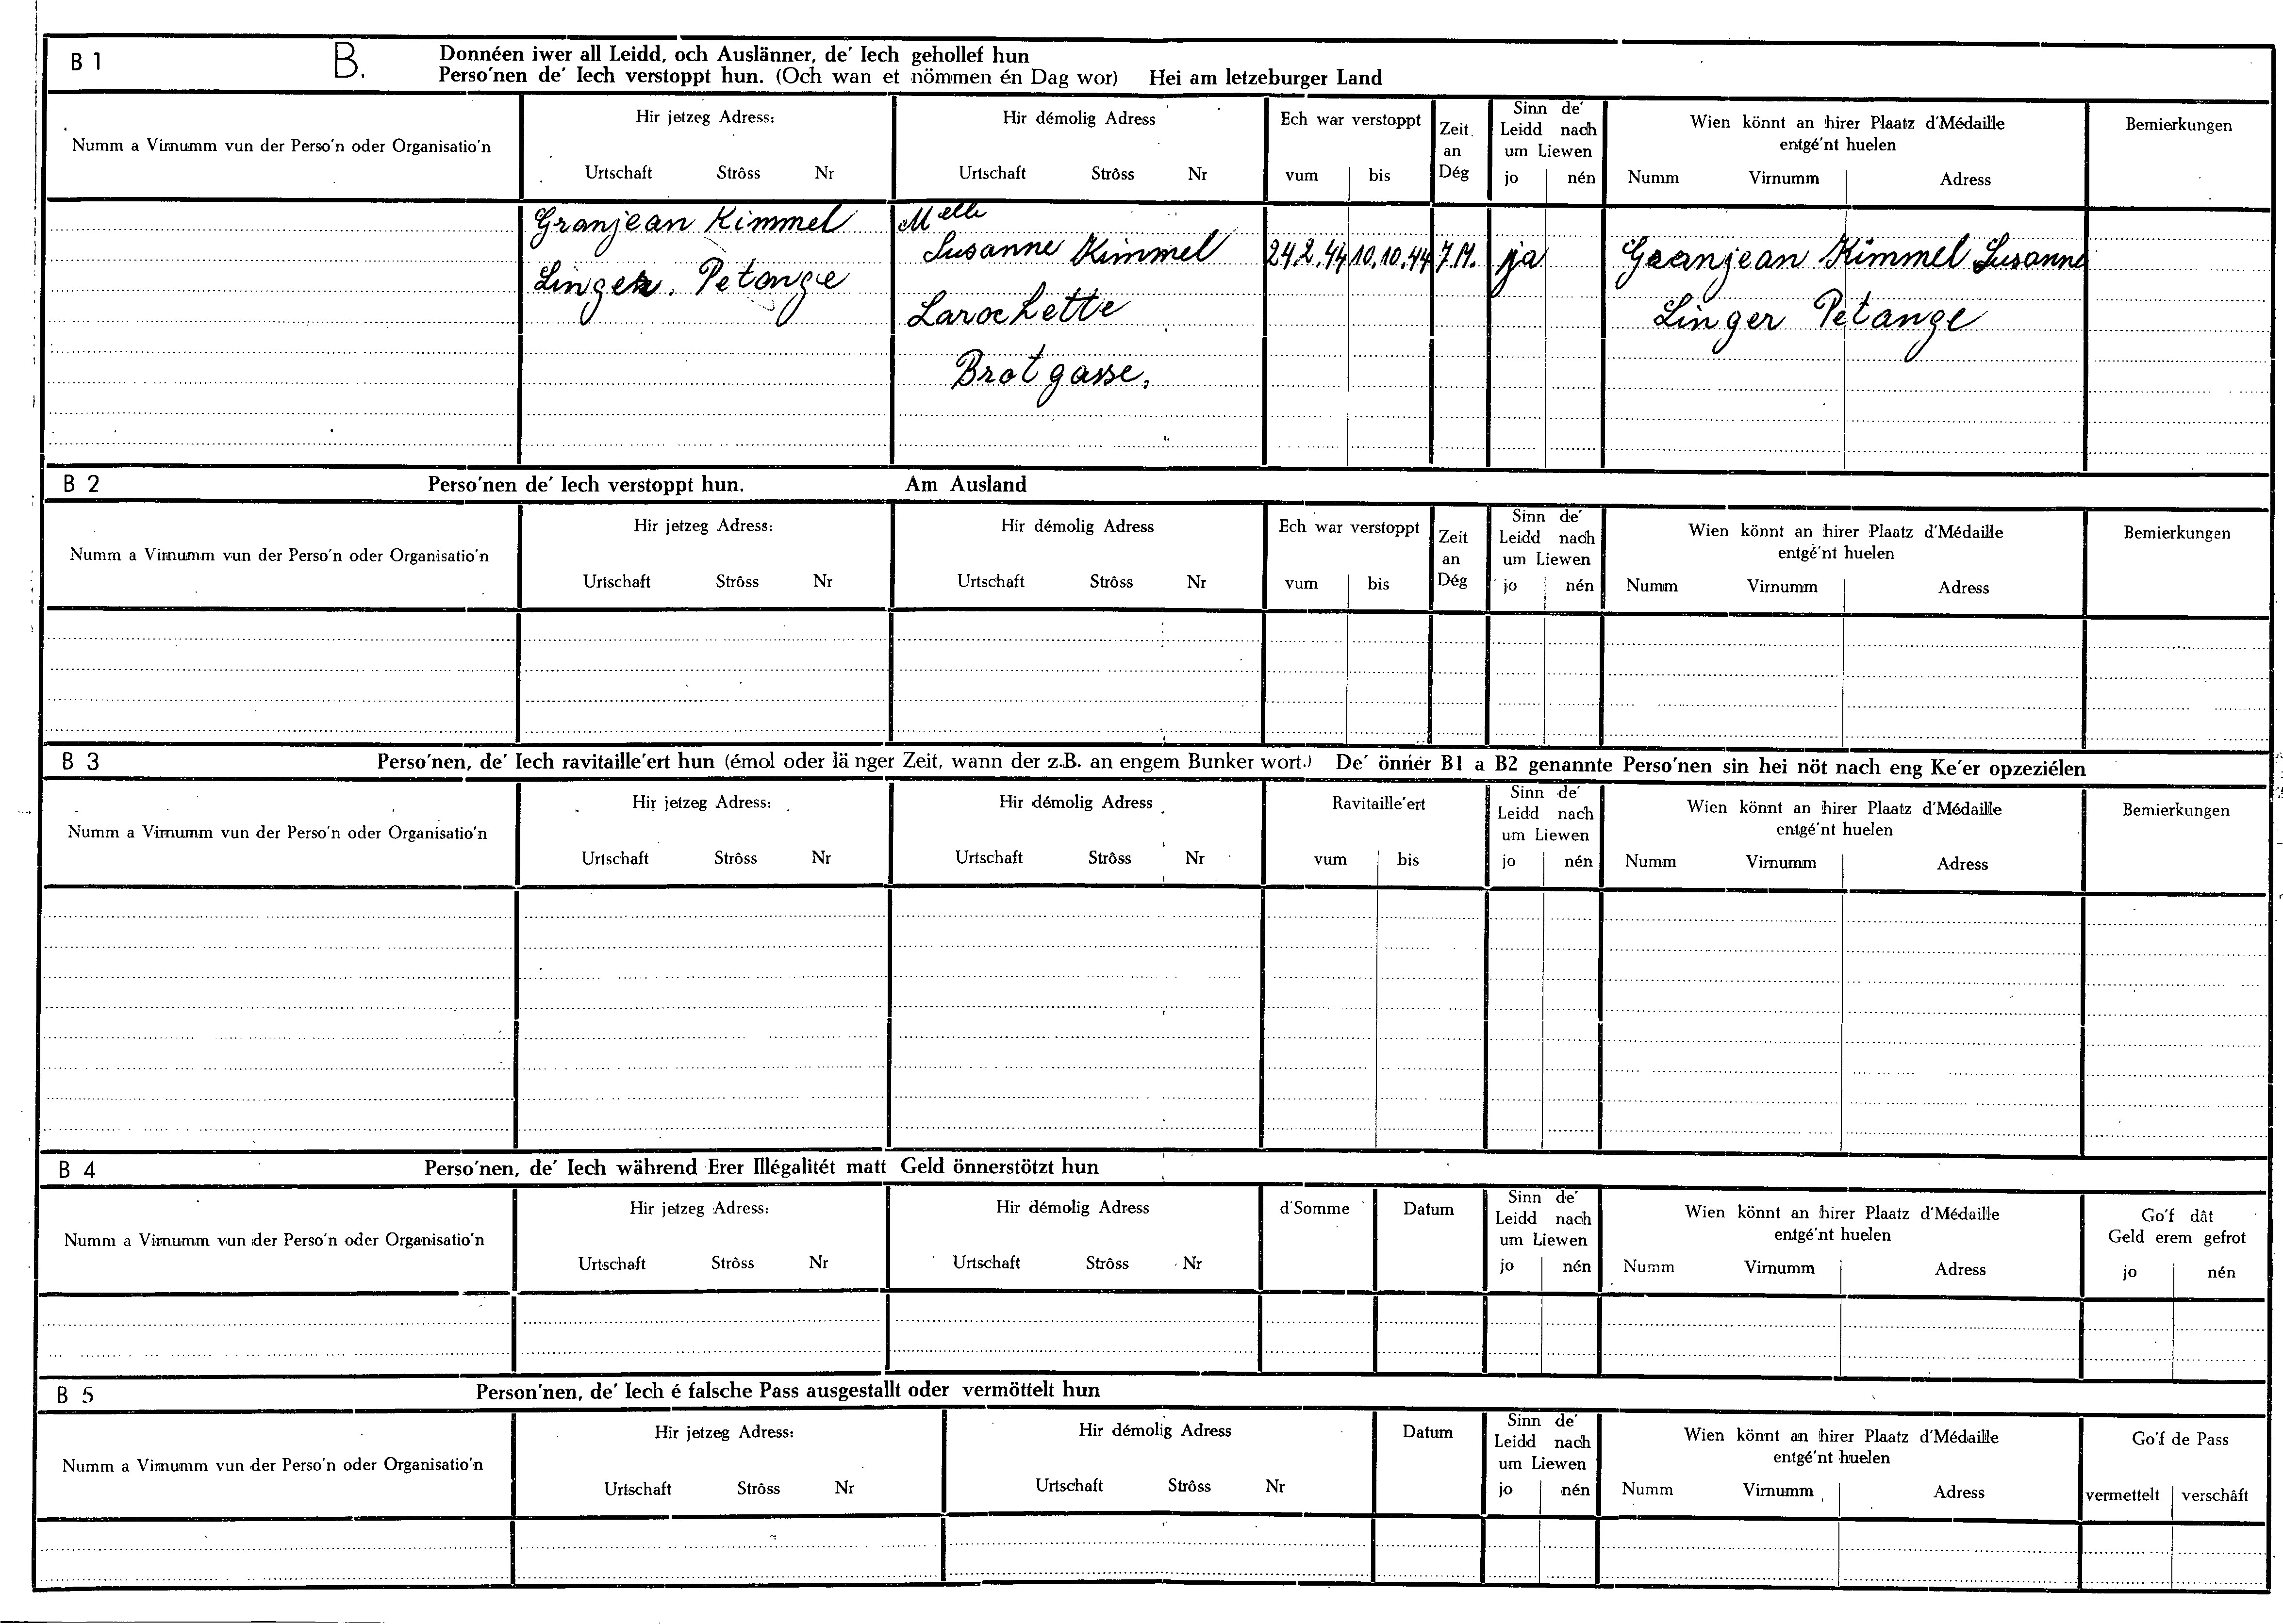 B 1 B. Donnéen iwer all Leidd, och Auslänner, de' Iech gehollef hun
Perso'nen de' Iech verstoppt hun. (Och wan et nömmen én Dag wor) Hei am letzeburger Land
Numm a Virnumm vun der Perso'n oder Organisatio'n
Hir jetzeg Adress:
Urtschaft Strôss Nr
Hir démolig Adress
Urtschaft Strôss Nr
Ech war verstoppt
vum bis
Zeit
an
Dég
Sinn de'
Leidd nach
um Liewen
jo nén
Wien könnt an hirer Plaatz d'Médaille
entgé'nt huelen
Numm Virnumm Adress
Bemierkungen
Granjean Kimmel
Linger. Petange
Melle
Susanne Kimmel
Larochette
Brotgasse,
24.2.44 10.10.44 7.M. ja
Granjean Kimmel Susanne
Linger Petange
B 2 Perso'nen de' Iech verstoppt hun. Am Ausland
Numm a Virnumm vun der Perso'n oder Organisatio'n
Hir jetzeg Adress:
Urtschaft Strôss Nr
Hir démolig Adress
Urtschaft Strôss Nr
Ech war verstoppt
vum bis
Zeit
an
Dég
Sinn de'
Leidd nach
um Liewen
jo nén
Wien könnt an hirer Plaatz d'Médaille
entgé'nt huelen
Numm Virnumm Adress
Bemierkungen
B 3 Perso'nen, de' Iech ravitaille'ert hun (émol oder länger Zeit, wann der z.B. an engem Bunker wort.) De' önner B1 a B2 genannte Perso'nen sin hei nöt nach eng Ke'er opzeziélen
Numm a Virnumm vun der Perso'n oder Organisatio'n
Hir jetzeg Adress:
Urtschaft Strôss Nr
Hir démolig Adress
Urtschaft Strôss Nr
Ravitaille'ert
vum bis
Sinn de'
Leidd nach
um Liewen
jo nén
Wien könnt an hirer Plaatz d'Médaille
entgé'nt huelen
Numm Virnumm Adress
Bemierkungen
B 4 Perso'nen, de' Iech während Erer Illégalitét matt Geld önnerstötzt hun
Numm a Virnumm vun der Perso'n oder Organisatio'n
Hir jetzeg Adress:
Urtschaft Strôss Nr
Hir démolig Adress
Urtschaft Strôss Nr
d'Somme
Datum
Sinn de'
Leidd nach
um Liewen
jo nén
Wien könnt an hirer Plaatz d'Médaille
entgé'nt huelen
Numm Virnumm Adress
Go'f dât
Geld erem gefrot
jo nén
B 5 Person'nen, de' Iech é falsche Pass ausgestallt oder vermöttelt hun
Numm a Virnumm vun der Perso'n oder Organisatio'n
Hir jetzeg Adress:
Urtschaft Strôss Nr
Hir démolig Adress
Urtschaft Strôss Nr
Datum
Sinn de'
Leidd nach
um Liewen
jo nén
Wien könnt an hirer Plaatz d'Médaille
entgé'nt huelen
Numm Virnumm Adress
Go'f de Pass
vermettelt verschâft